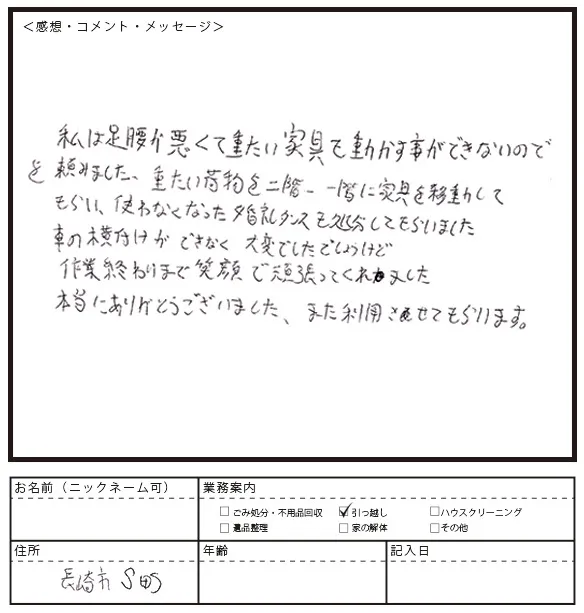 ＜感想・コメント・メッセージ＞
私は足腰が悪くて重たい家具を動かす事ができないので
を 頼みました、重たい荷物を二階、一階に家具を移動して
もらい、使わなくなった婚礼タンスも処分してもらいました
車の横付けができなく大変でしたでしょうけど
作業終わりまで笑顔で頑張ってくれました
本当にありがとうございました、また利用させてもらいます。
お名前（ニックネーム可）
業務案内
ごみ処分・不用品回収 引っ越し ハウスクリーニング
遺品整理 家の解体 その他
住所
年齢
記入日
長崎市 S町